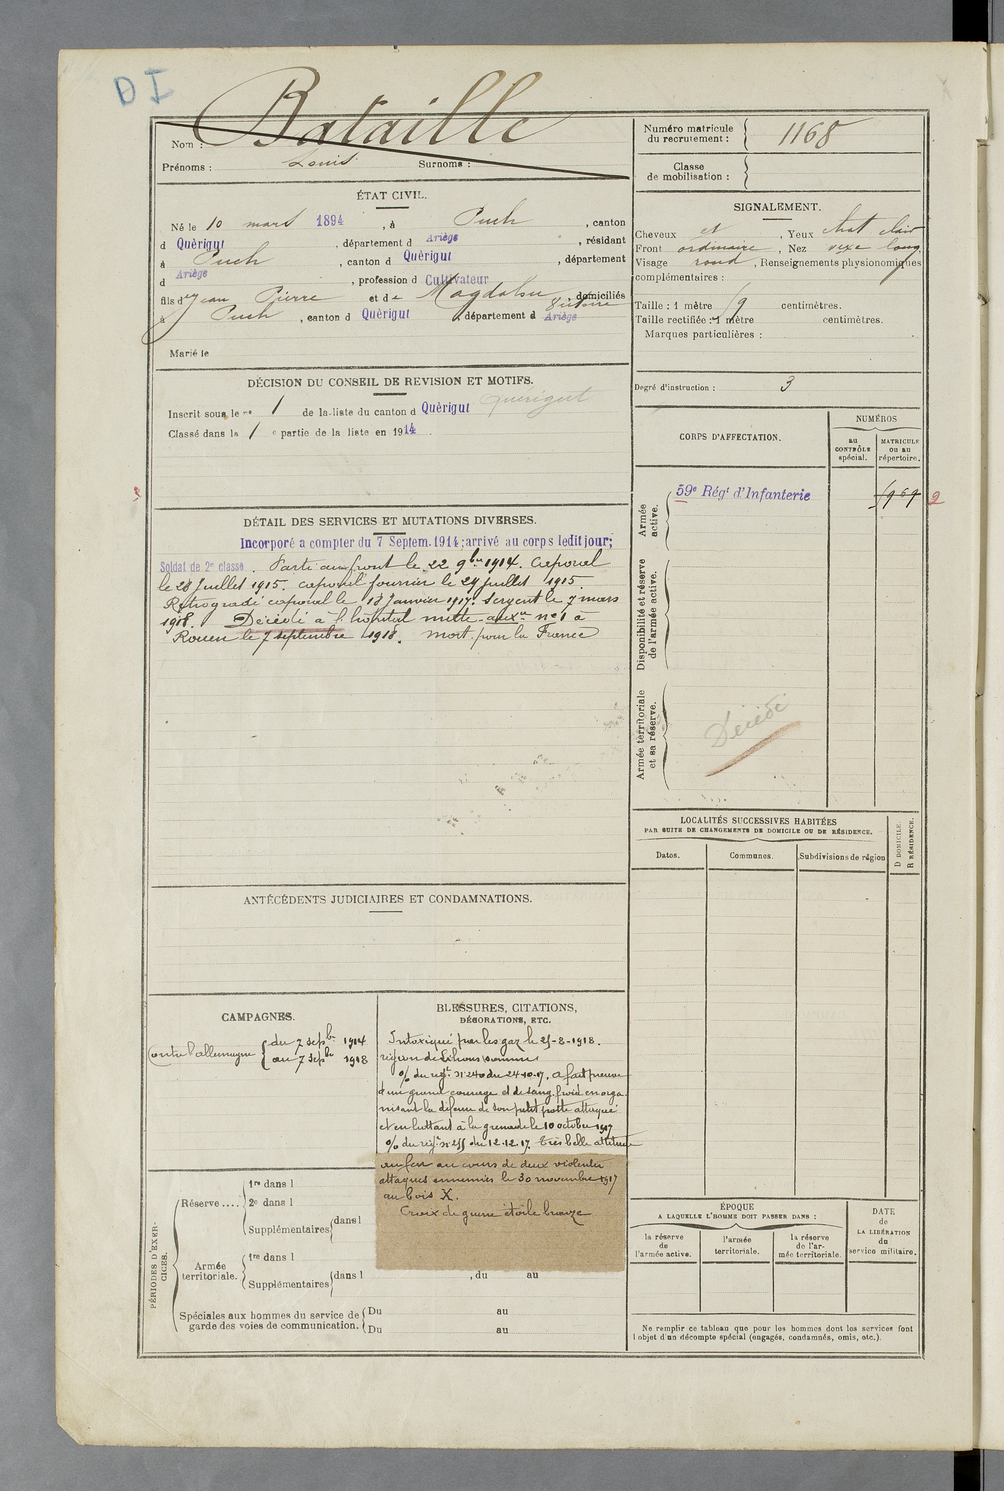 D I
Nom : Bataille
Prénoms : Louis Surnoms :
Numéro matricule
du recrutement : 1168
Classe
de mobilisation :
ÉTAT CIVIL.
Né le 10 mars 1894, à Puch, canton
d Quèrigut, département d Ariège, résidant
à Puch, canton d Quèrigut, département
d Ariège, profession d Cultivateur
fils d' Jean Pierre et de Magdalen Victoire, domiciliés
à Puch, canton d Quèrigut, département d Ariège
Marié le
SIGNALEMENT.
Cheveux , Yeux chat clair
Front ordinaire, Nez vexe long
Visage rond, Renseignements physionomiques
complémentaires :
Taille : 1 mètre centimètres.
Taille rectifiée : 1 mètre centimètres.
Marques particulières :
Degré d'instruction : 3
DÉCISION DU CONSEIL DE REVISION ET MOTIFS.
Inscrit sous le no 1 de la liste du canton d Quèrigut Quérigut
Classé dans la 1 e partie de la liste en 1914.
CORPS D'AFFECTATION.
NUMÉROS
AU
CONTRÔLE
spécial.
MATRICULE
OU AU
répertoire.
Armée
active.
59e Régt d'Infanterie
2
Disponibilité et réserve
de l'armée active.
Armée territoriale
et sa réserve.
Décédé
DÉTAIL DES SERVICES ET MUTATIONS DIVERSES.
Incorporé a compter du 7 Septem. 1914; arrivé au corps ledit jour;
Soldat de 2e classe. Parti au front le 22 9bre 1914. Caporal
le 28 Juillet 1915. caporal fourrier le 29 juillet 1915
Rétrogradé caporal le 13 Janvier 1917. Sergent le 7 mars
1918. Décédé à l'hôpital milte auxre no 1 à
Rouen le 7 septembre 1918. mort pour la France
LOCALITÉS SUCCESSIVES HABITÉES
PAR SUITE DE CHANGEMENTS DE DOMICILE OU DE RÉSIDENCE.
Dates.
Communes.
Subdivisions de région
D DOMICILE.
R RÉSIDENCE.
ANTÉCÉDENTS JUDICIAIRES ET CONDAMNATIONS.
CAMPAGNES.
Contre l'allemagne { du 7 sepbre 1914
au 7 sepbre 1918
BLESSURES, CITATIONS,
DÉCORATIONS, ETC.
Intoxiqué par les gaz le 25-8-1918.
région de Lihons (somme)
% du regt no 240 du 24-10-17. a fait preuve
d'un grand courage et de sang froid en orga
nisant la défense de son petit poste attaqué
et en luttant à la grenade le 10 octobre 1917
% du regt no 255 du 12.12.17. très belle attitude
au feu au cours de deux violentes
attaques ennemies le 30 novembre 1917
au bois X.
Croix de guerre étoile bronze
PÉRIODES D'EXER-
CICES.
Réserve....
1re dans l
2e dans l
Supplémentaires dans l
Armée
territoriale.
1re dans l
Supplémentaires dans l , du au
Spéciales aux hommes du service de
garde des voies de communication.
Du au
Du au
ÉPOQUE
A LAQUELLE L'HOMME DOIT PASSER DANS :
la réserve
de
l'armée active.
l'armée
territoriale.
la réserve
de l'ar-
mée territoriale.
DATE
de
LA LIBÉRATION
du
service militaire.
Ne remplir ce tableau que pour les hommes dont les services font
l'objet d'un décompte spécial (engagés, condamnés, omis, etc.).